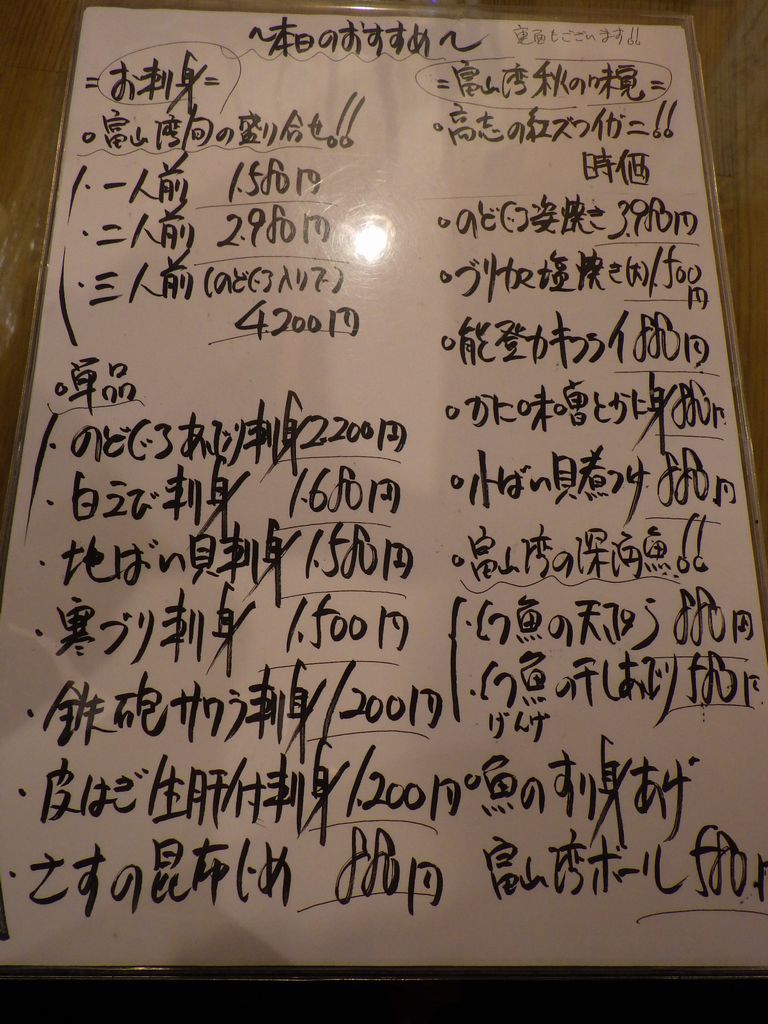 〜本日のおすすめ〜
裏面もございます!!
=お刺身=
。富山湾旬の盛り合せ!!
・一人前 1.580円
・二人前 2.980円
・三人前(のどぐろ入りで)
4200円
。単品
・のどぐろあぶり刺身2200円
・白えび刺身 1.680円
・地ばい貝刺身1.580円
・寒ブリ刺身 1.500円
・鉄砲サワラ刺身1200円
・皮はぎ生肝付刺身1.200円
・さすの昆布じめ 880円
=富山湾秋の味覚=
・高志の紅ズワイガニ!!
時価
。のどぐろ姿焼き3.980円
。ブリカマ塩焼き(大)1.500円
。能登カキフライ880円
。かに味噌とかに身880円
。小ばい貝煮つけ880円
。富山湾の深海魚!!
・幻魚の天ぷら880円
・幻魚の干しあぶり580円
げんげ
。魚のすり身あげ
富山湾ボール580円